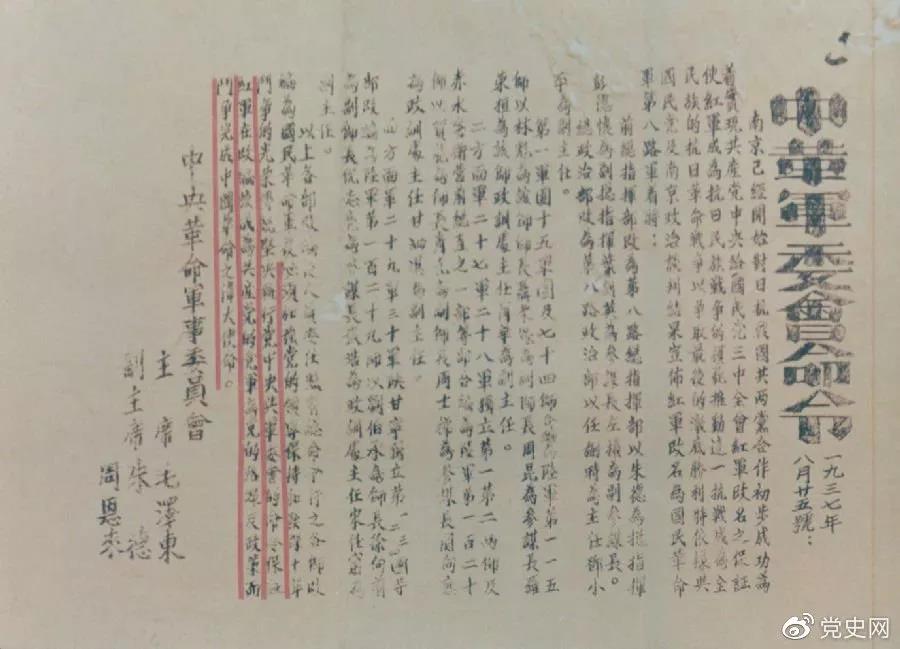 中革軍委會命令
一九三七年
八月廿五號：
南京已經開始對日抗戰國共兩黨合作初步成功為
着實現共產党中央給國民党三中全會紅軍改名之保証
使紅軍成為抗日民族戰争的模範推動這一抗戰成為全
民族的抗日革命戰争以争取最後的澈底勝利特依據與
國民党及南京政治談判結果宣佈紅軍改名為國民革命
軍第八路軍着將：
前總指揮部改為第八路總指揮部以朱德為總指揮
彭德懷為副總指揮葉劍英為參謀長左權為副參謀長。
總政治部改為第八路政治部以任弼時為主任鄧小
平為副主任。
第一軍團十五軍團及七十四師合編為陸軍第一一五
師以林彪為該師師長聶榮臻為副師長周昆為參謀長羅
榮桓為該師政訓處主任蕭華為副主任。
二方面軍二十七軍二十八軍獨立第一第二兩師及
赤水警衛營前總直之一部等部合編為陸軍第一百二十
師以賀龍為師長蕭克為副師長周士第為參謀長關向應
為政訓處主任甘泗淇為副主任。
四方面軍二十九軍三十軍陝甘寧獨立第一二三四等
部改編為陸軍第一百二十九師以劉伯承為師長徐向前
為副師長倪志亮為參謀長張浩為政訓處主任宋任窮為
副主任。
以上各部改編後人員委任照前總命令行之各部改
編為國民革命軍後必須加強党的領導保持和發揮十年
鬥争的光荣傳統坚决執行党中央與軍委會的命令保証
紅軍在改編後成為共產党的党軍為党的路線及政策而
鬥争完成中國革命之偉大使命。
中央革命軍事委員會
主席毛澤東
副主席朱德
周恩來
党史网